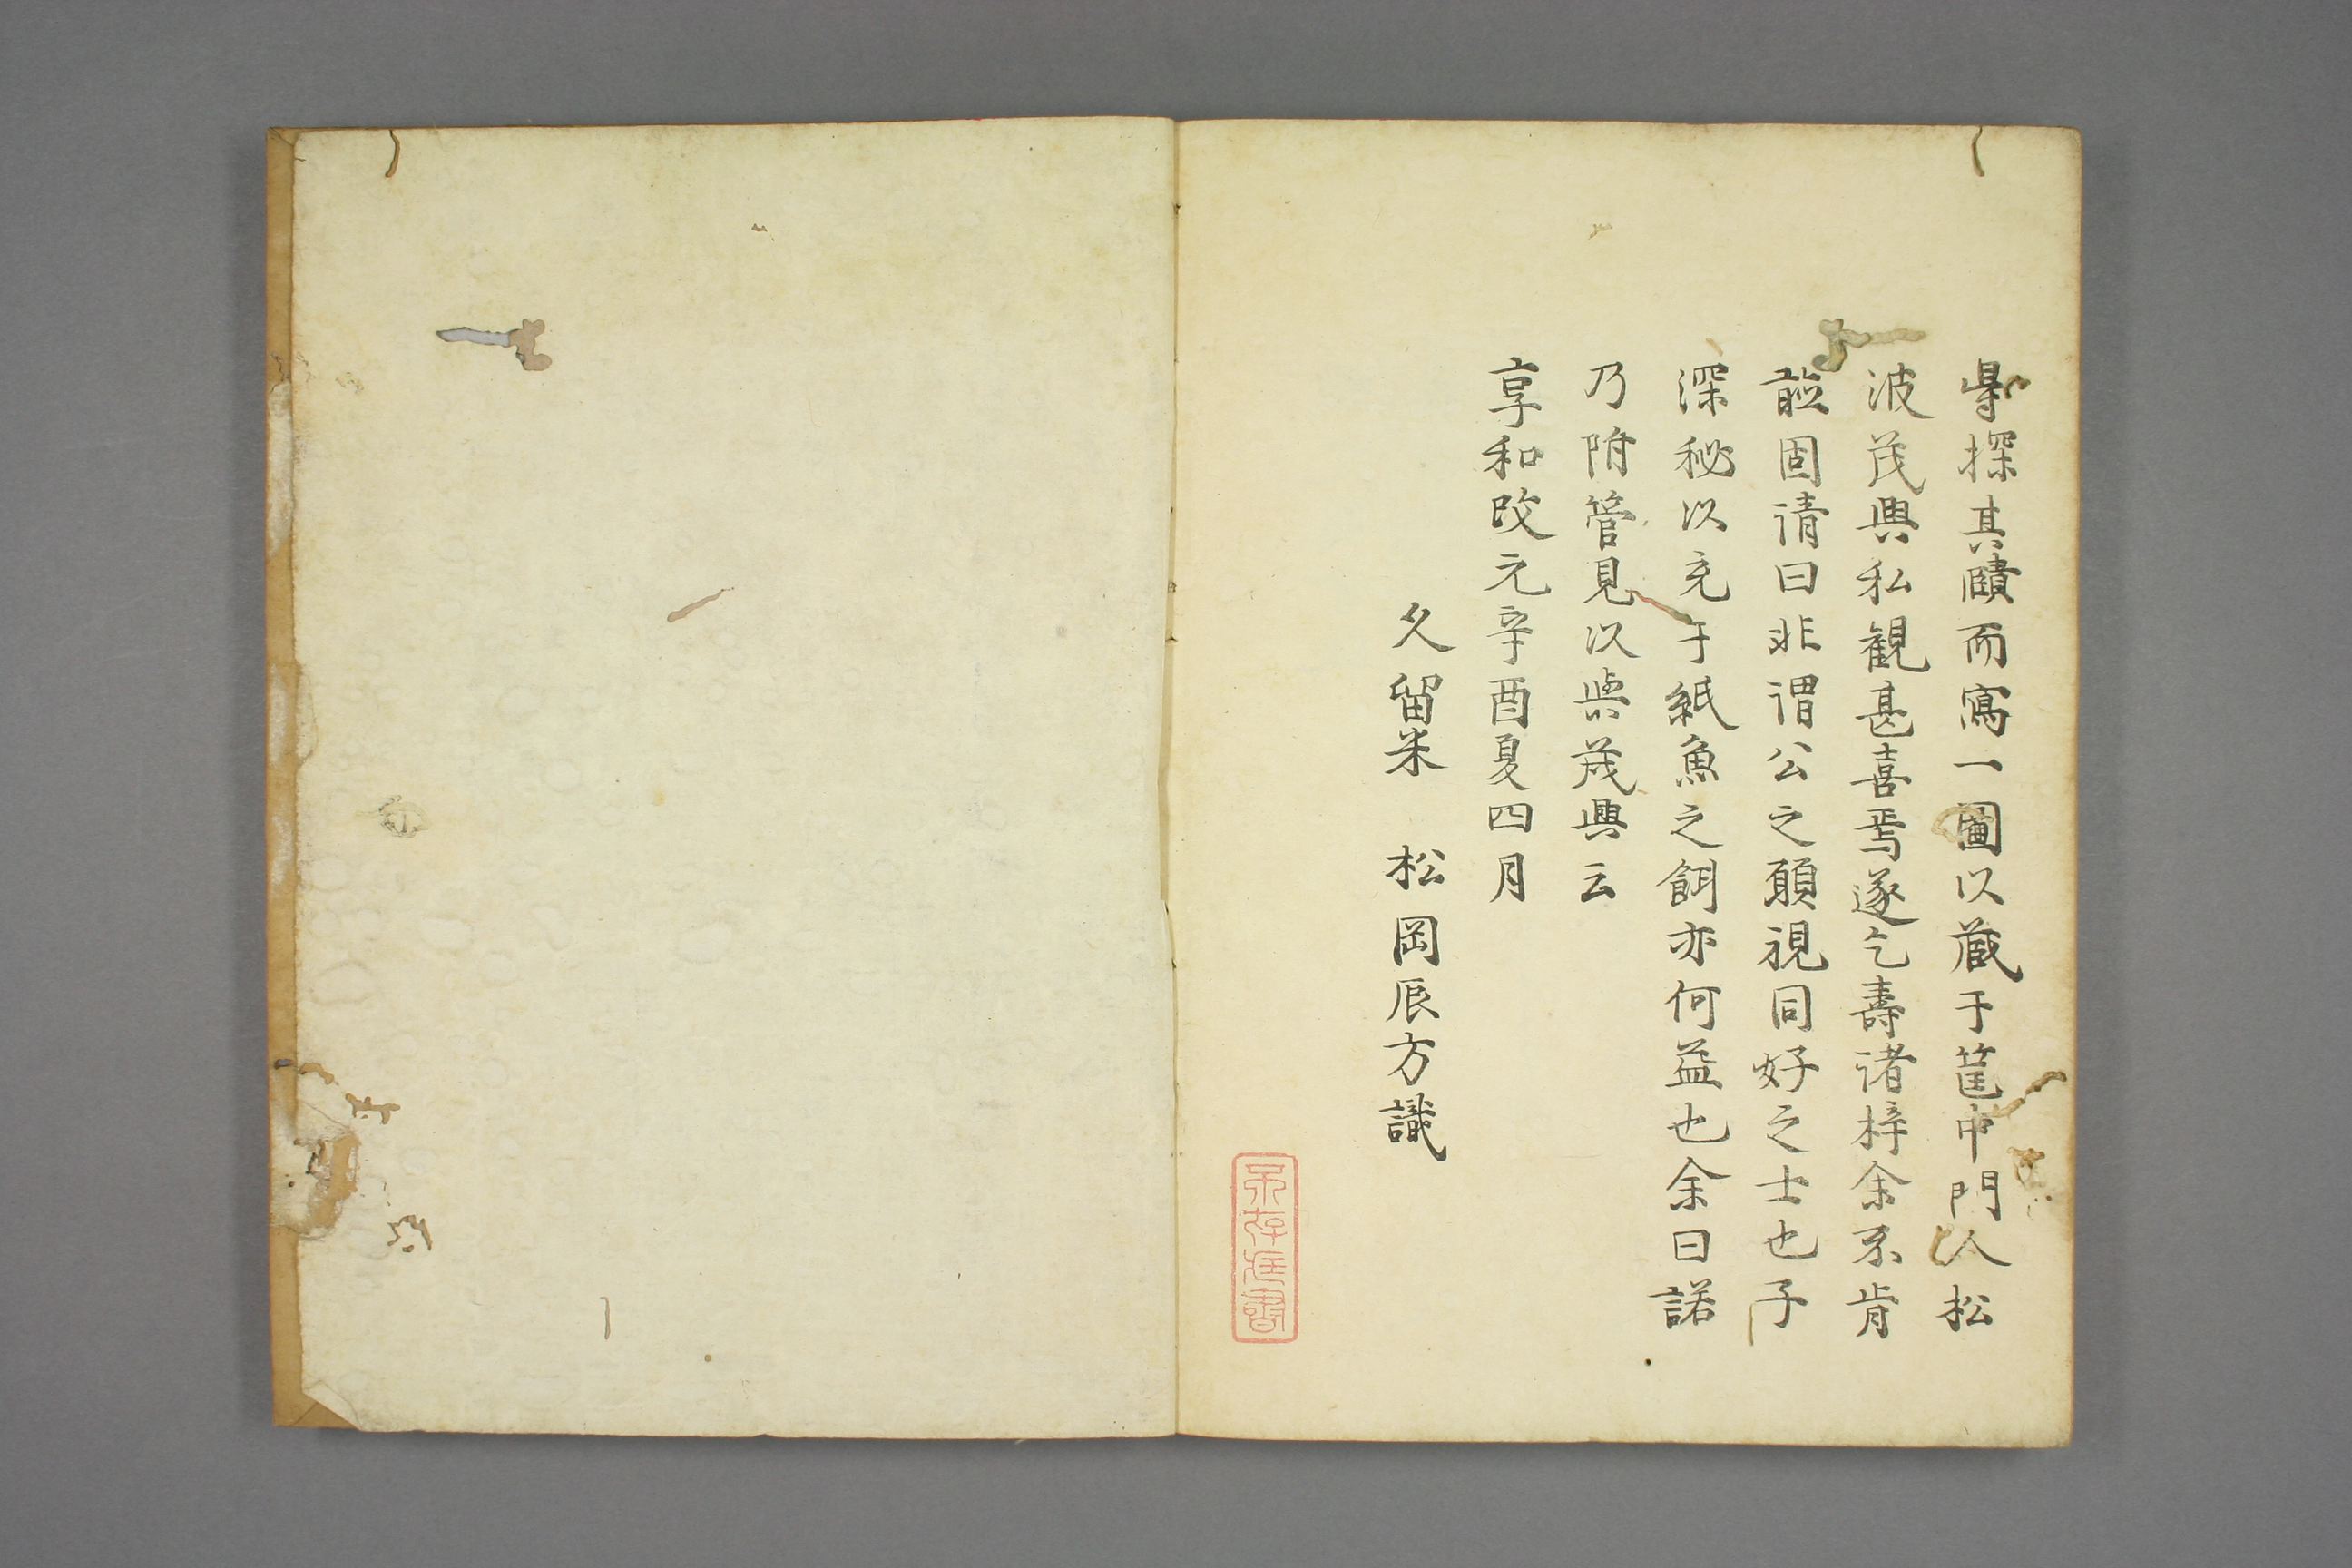 得探其賾而寫一圖以蔵于筐中門人松
波茂興私観甚喜焉遂乞壽諸梓余不肯
茂固請曰非謂公之願視同好之士也子
深秘以充于紙魚之餌亦何益也余曰諾
乃附管見以與茂興云
享和改元辛酉夏四月
久留米 松岡辰方識